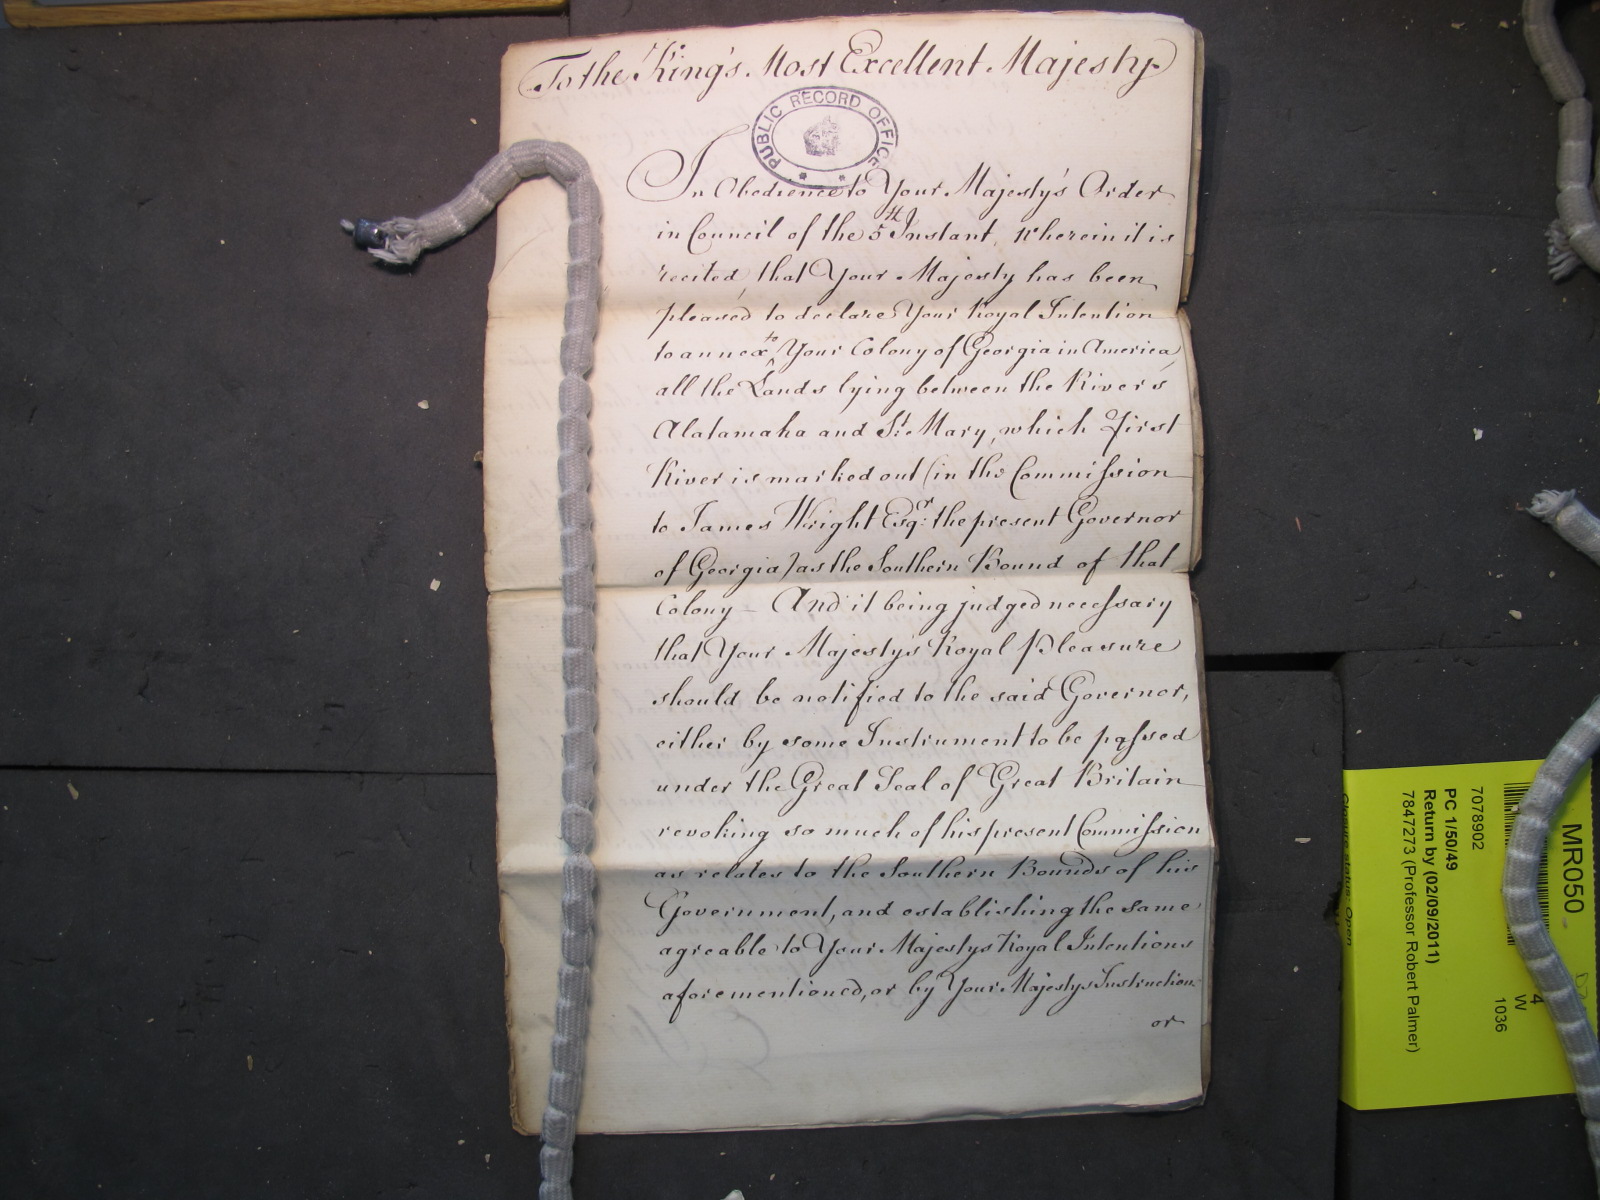 To the King's Most Excellent Majesty
PUBLIC RECORD OFFICE
In Obedience to Your Majesty's Order
in Council of the 5th Instant, wherein it is
recited, that Your Majesty has been
pleased to declare Your Royal Intention
to annex to Your Colony of Georgia in America,
all the Lands lying between the Rivers
Alatamaha and St. Mary, which first
River is marked out (in the Commission
to James Wright Esqr. the present Governor
of Georgia) as the Southern Bound of that
Colony – And it being judged necessary
that Your Majesty's Royal Pleasure
should be notified to the said Governor,
either by some Instrument to be passed
under the Great Seal of Great Britain
revoking so much of his present Commission
as relates to the Southern Bounds of his
Government, and establishing the same
agreable to Your Majestys Royal Intentions
aforementioned, or by Your Majestys Instructions
or
MR050
4
W
1036
7078902
PC 1/50/49
Return by (02/09/2011)
7847273 (Professor Robert Palmer)
Closure status: Open